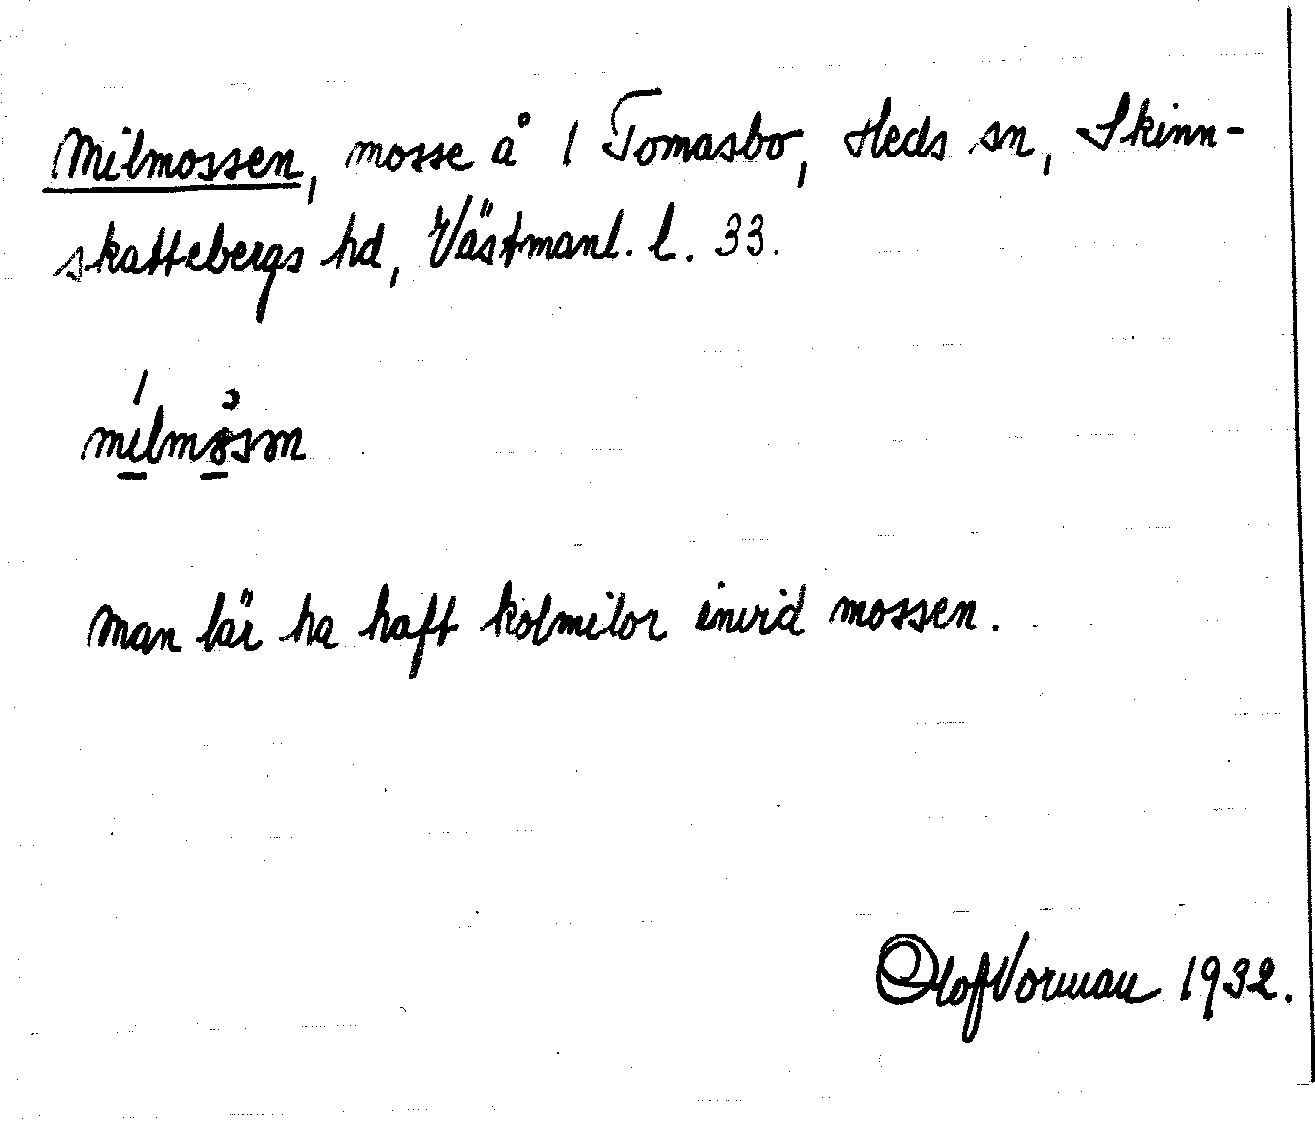 Milmossen, mosse å 1 Tomasbo, Heds sn, Skinn-
skattebergs hd, Västmanl. l. 33.
mílmòsm
Man lär ha haft kolmilor invid mossen.
Olof Vorman 1932.